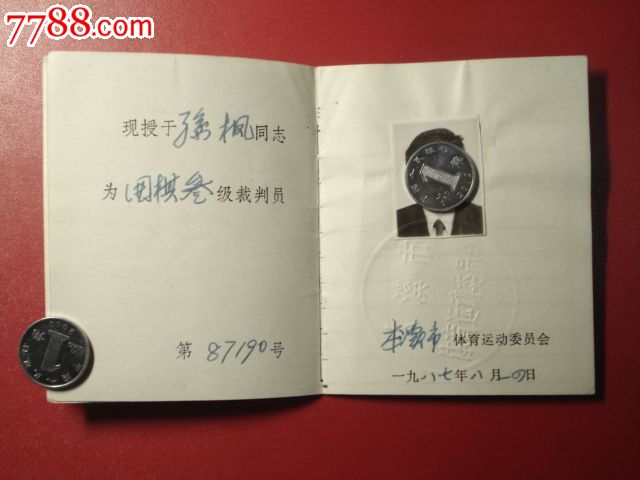 7788.com
现授于孙枫同志
为围棋叁级裁判员
第87190号
本溪市 体育运动委员会
一九八七年八月一四日